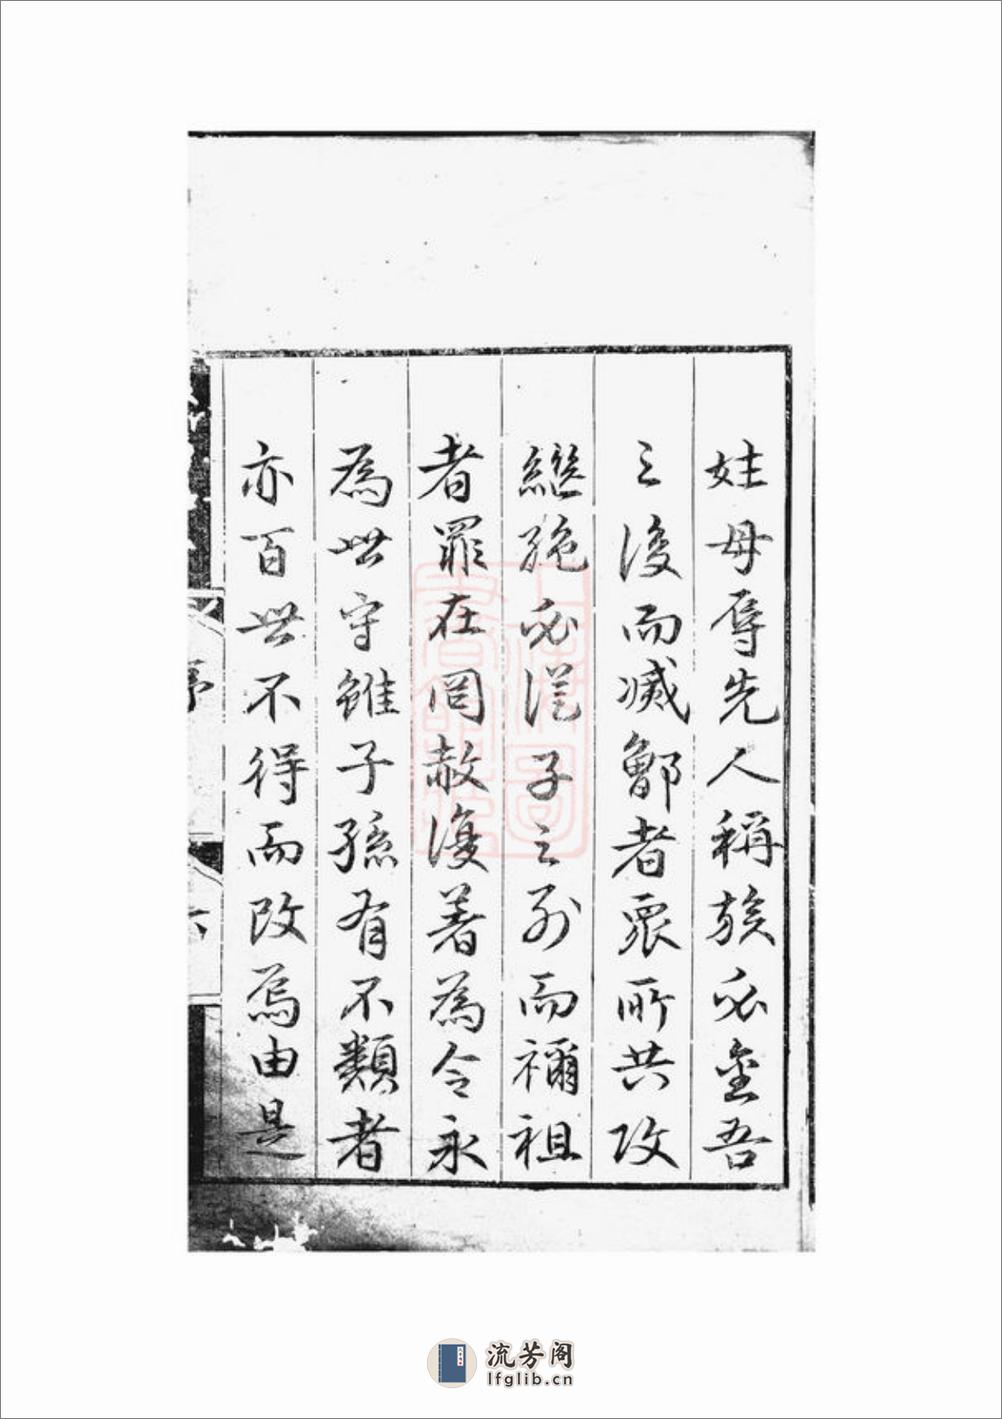 姓毋辱先人稱族必塋吾
之後而滅鄫者衆所共攻
繼絶必從子之列而禰祖
者罪在罔赦復著為令永
為世守雖子孫有不類者
亦百世不得而改焉由是
序
六
流芳阁
lfglib.cn